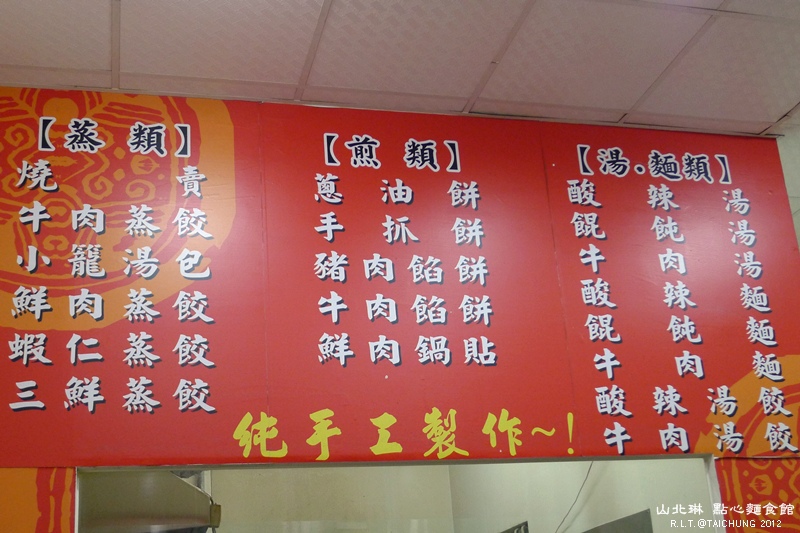 【蒸類】
燒賣
牛肉蒸餃
小龍湯包
鮮肉蒸餃
蝦仁蒸餃
三鮮蒸餃
【煎類】
蔥油餅
手抓餅
豬肉餡餅
牛肉餡餅
鮮肉鍋貼
【湯.麵類】
酸辣湯
餛飩湯
牛肉湯
酸辣麵
餛飩麵
牛肉麵
酸辣湯餃
牛肉湯餃
純手工製作~!
山北琳 點心麵食館
R.L.T.@TAICHUNG 2012